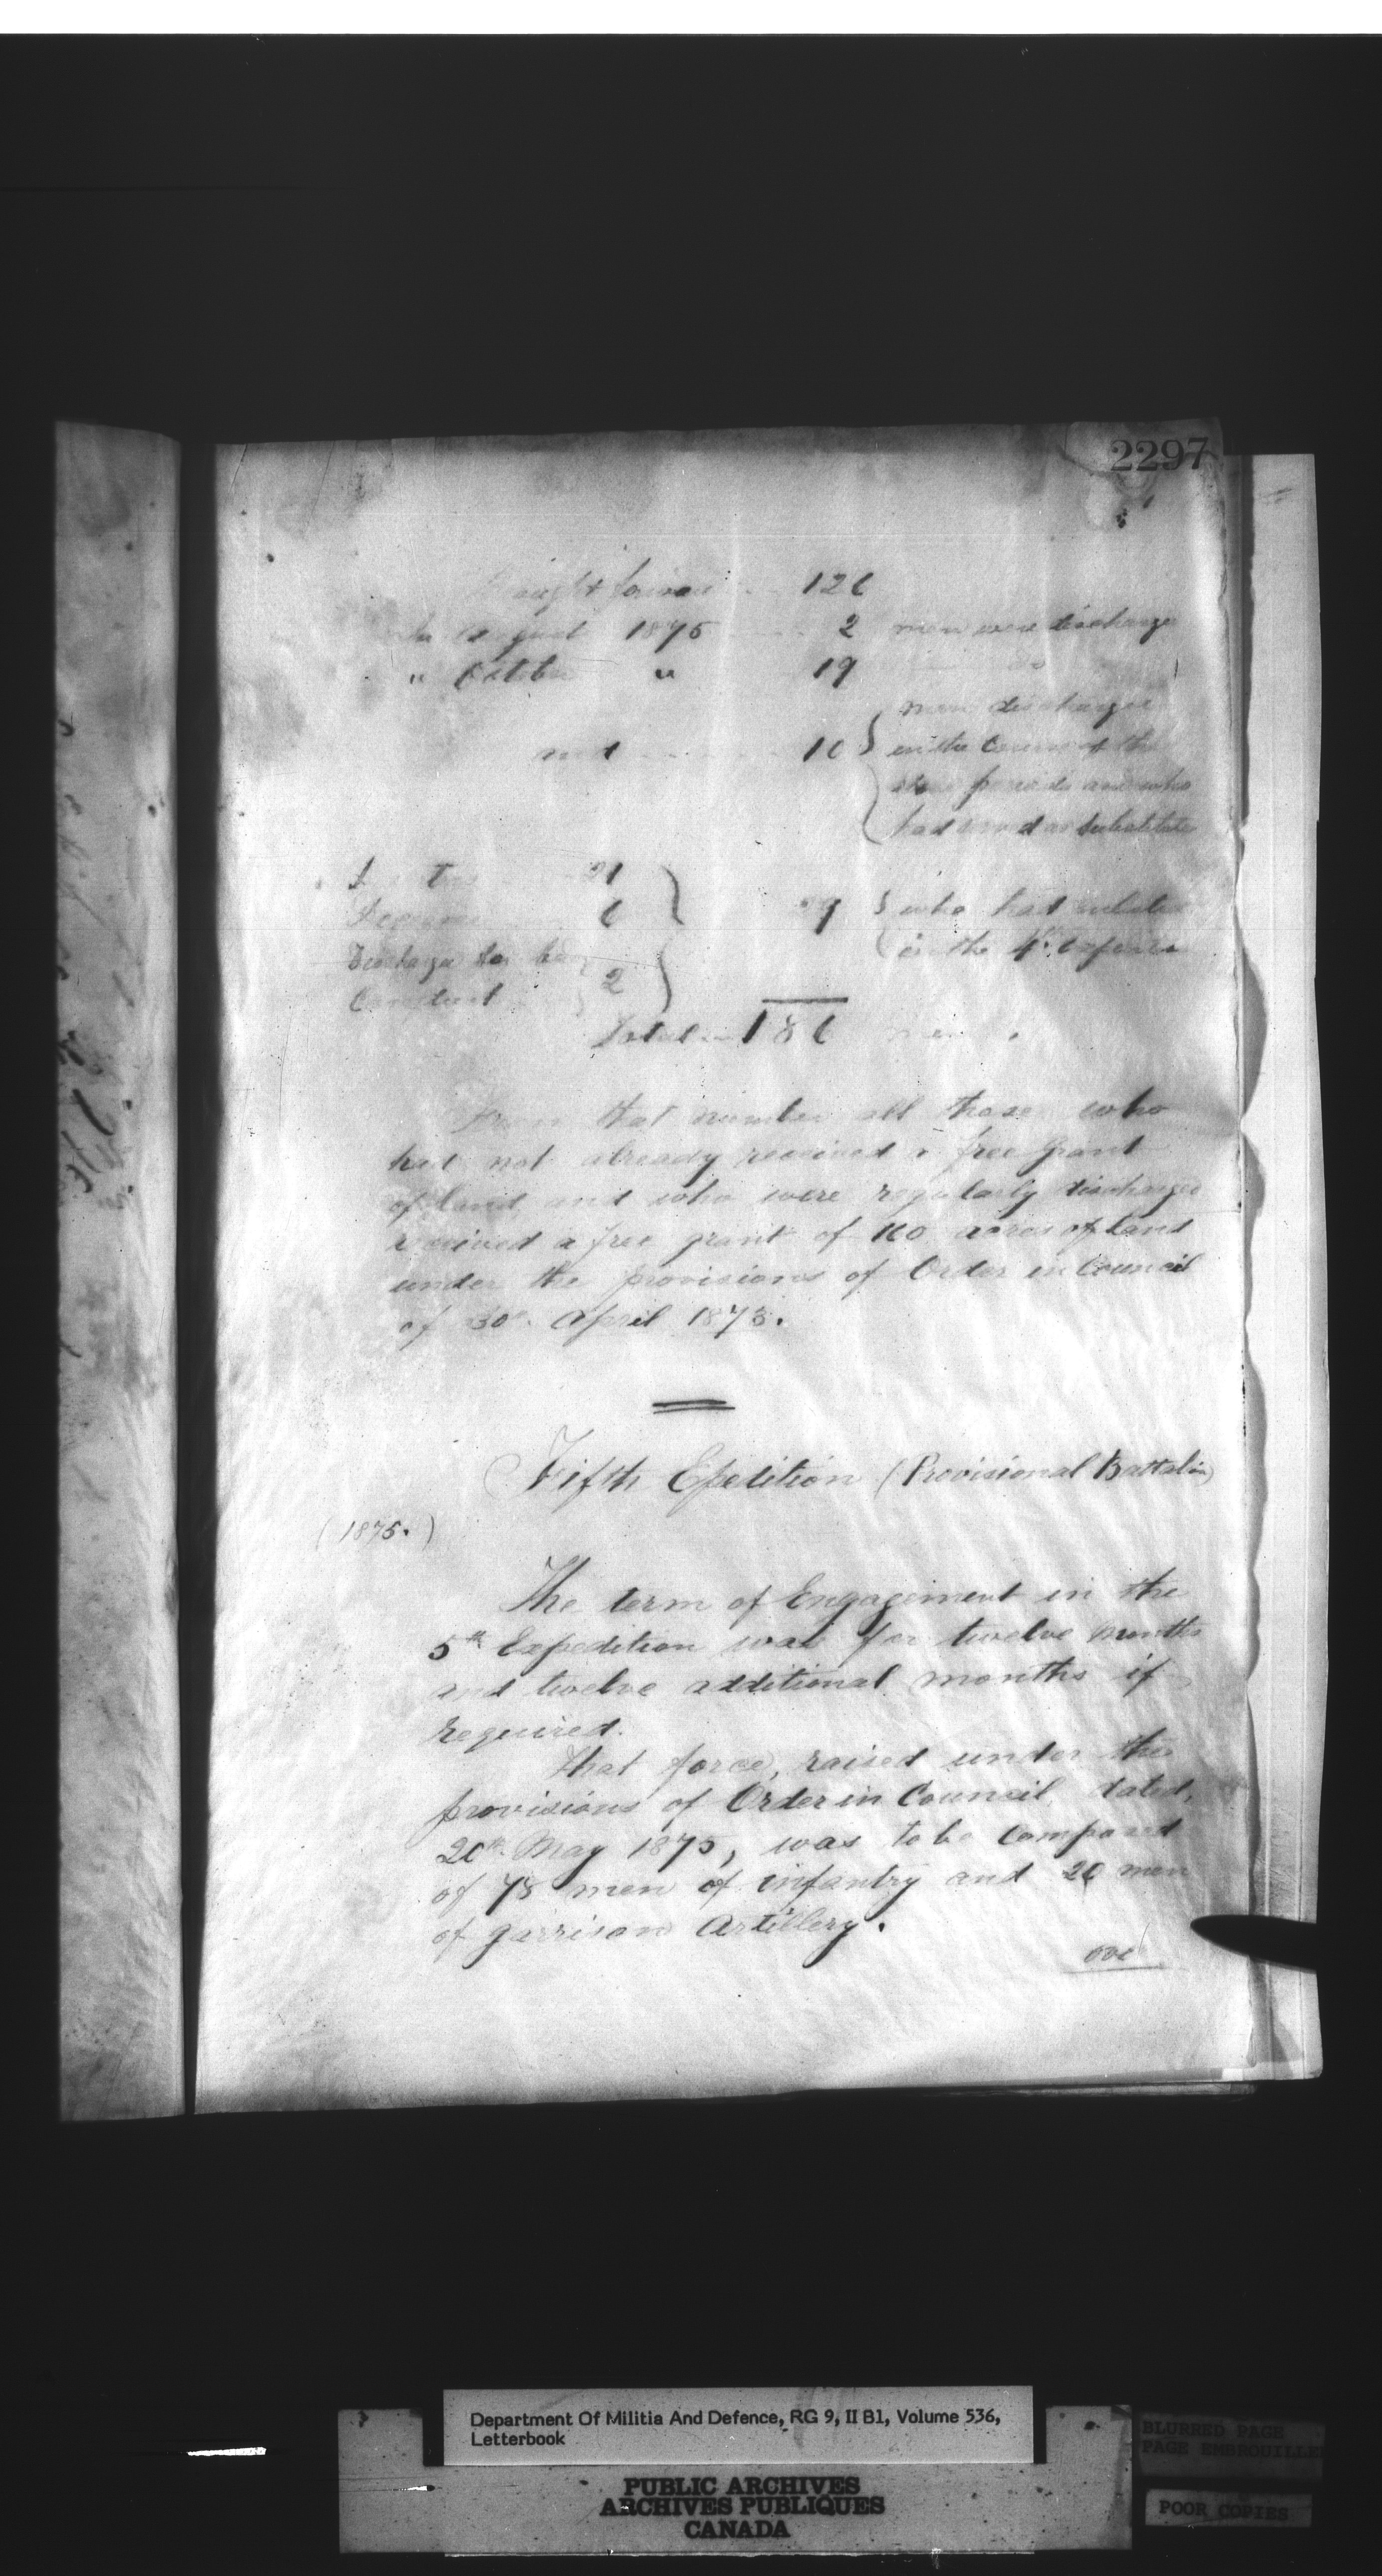 2297
Brought forward 126
In August 1875 2 men were discharged
" October " 19 do
men discharged
and 10 in the course of the
above periods and who
had served as substitutes
21
6 29 who had enlisted
Discharged for bad 2 in the 4th Expedn
Conduct
Total 186 men.
From that number all those who
had not already received a free grant
of land and who were regularly discharged
received a free grant of 160 acres of land
under the provisions of Order in Council
of 30th April 1873.
Fifth Epedition (Provisional Battalion)
(1875.)
The term of Engagement in the
5th Expedition was for twelve months
and twelve additional months if
required.
That force, raised under the
provisions of Order in Council, dated,
20th May 1875, was to be composed
of 78 men of infantry and 20 men
of garrison Artillery.
Department Of Militia And Defence, RG 9, II B1, Volume 536,
Letterbook
PUBLIC ARCHIVES
ARCHIVES PUBLIQUES
CANADA
BLURRED PAGE
PAGE EMBROUILLEE
POOR COPIES